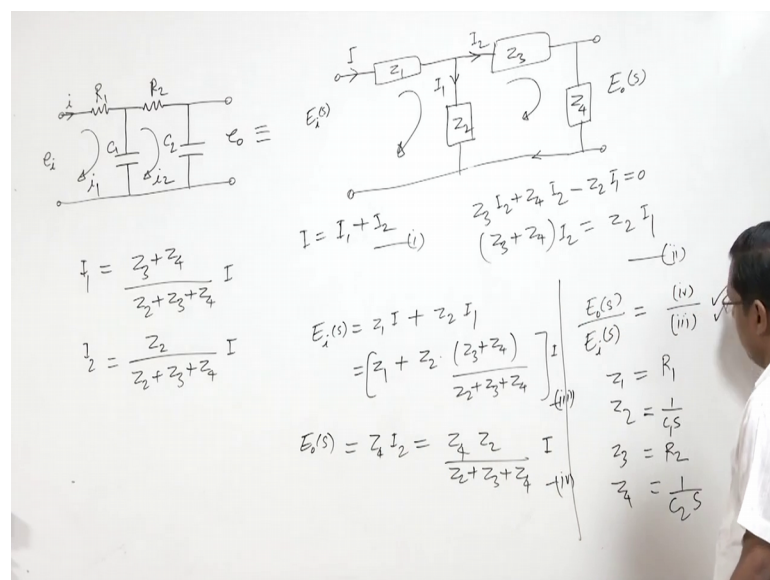 i R₁ R₂
eᵢ C₁ C₂ e₀ ≡
i₁ i₂
I Z₁ I₂ Z₃
Eᵢ(s) I₁ Z₂ Z₄ E₀(s)
I = I₁ + I₂ —(i)
Z₃ I₂ + Z₄ I₂ − Z₂ I₁ = 0
(Z₃ + Z₄) I₂ = Z₂ I₁
—(ii)
I₁ = \frac{Z₃ + Z₄}{Z₂ + Z₃ + Z₄} I
I₂ = \frac{Z₂}{Z₂ + Z₃ + Z₄} I
Eᵢ(s) = Z₁ I + Z₂ I₁
= [Z₁ + Z₂ · \frac{(Z₃ + Z₄)}{Z₂ + Z₃ + Z₄}] I —(iii)
E₀(s) = Z₄ I₂ = \frac{Z₄ Z₂}{Z₂ + Z₃ + Z₄} I —(iv)
\frac{E₀(s)}{Eᵢ(s)} = \frac{(iv)}{(iii)}
Z₁ = R₁
Z₂ = \frac{1}{C₁S}
Z₃ = R₂
Z₄ = \frac{1}{C₂S}